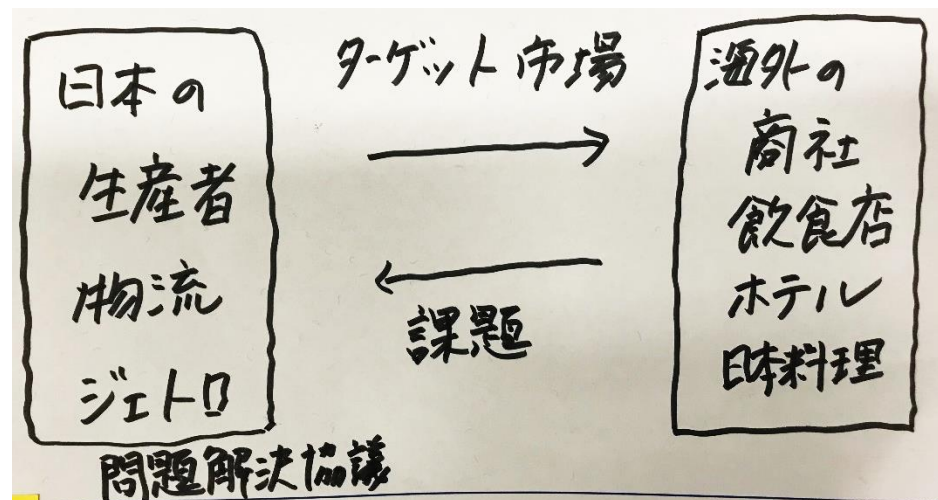 日本の
生産者
物流
ジェトロ
ターゲット市場
課題
海外の
商社
飲食店
ホテル
日本料理
問題解決協議